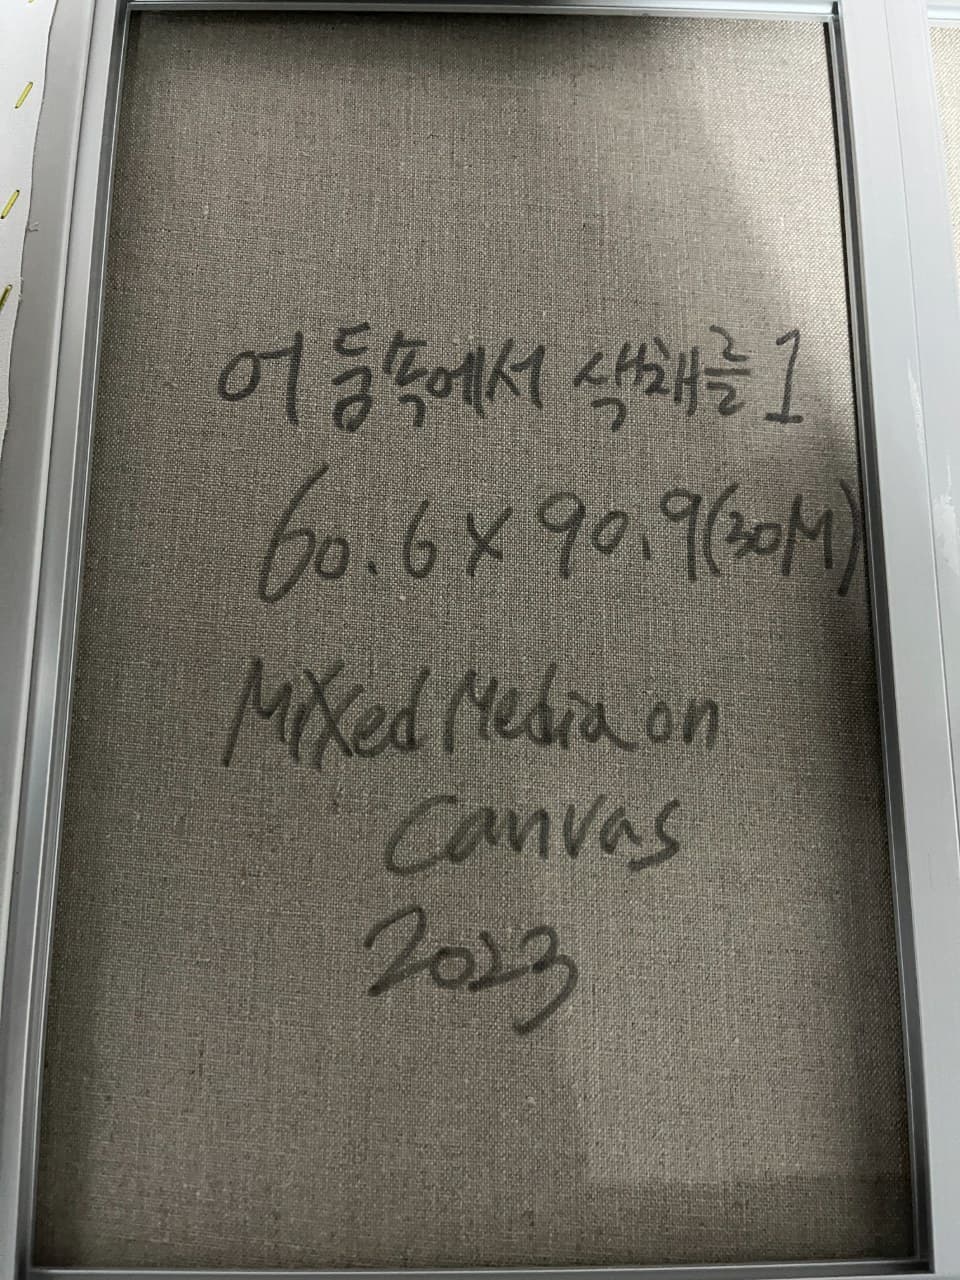 어둠속에서 색채를 1
60.6 x 90.9(30M)
Mixed Media on
Canvas
2023